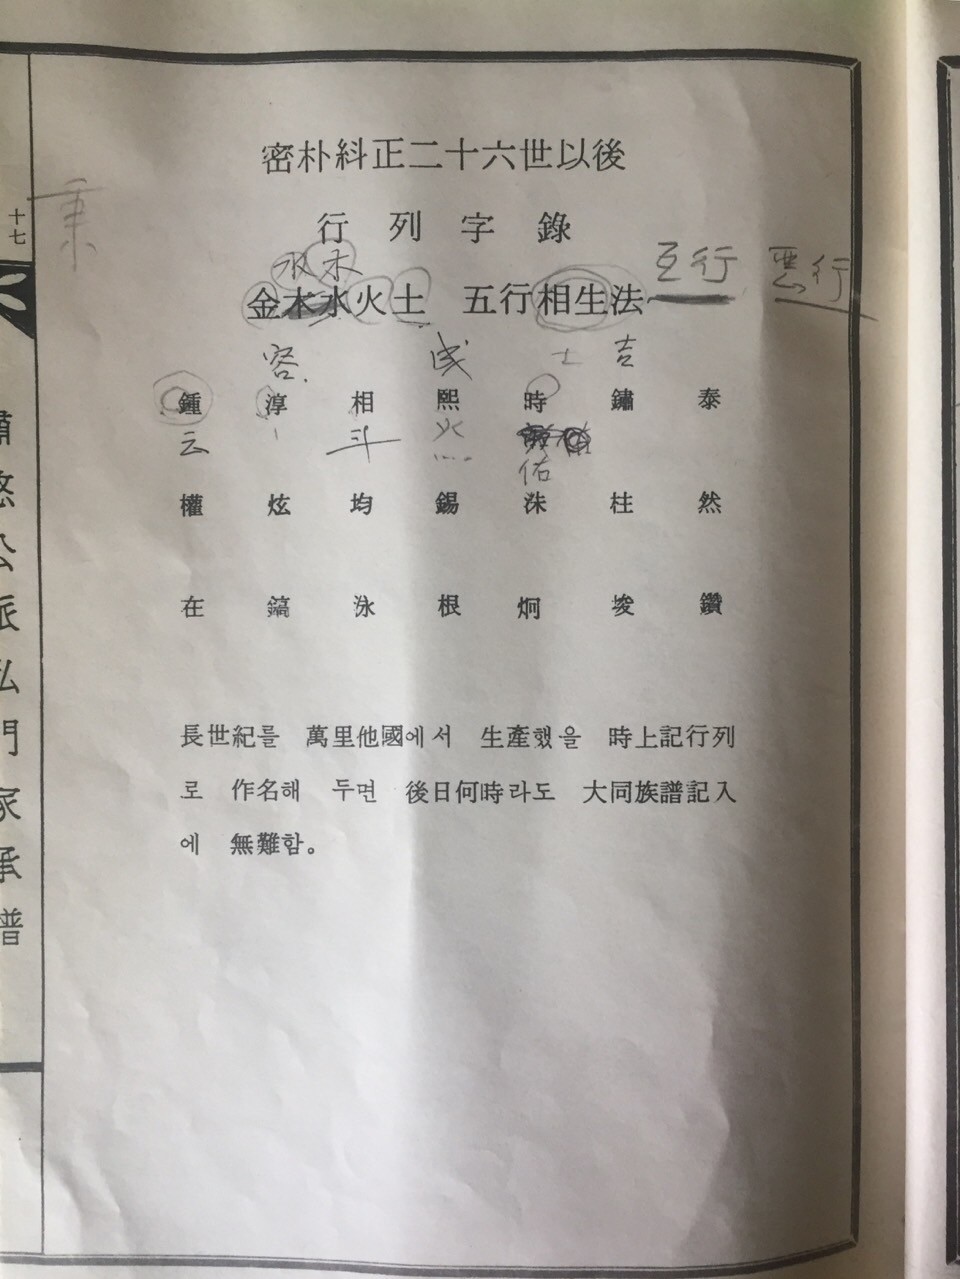 密朴糾正二十六世以後
行列字錄
水木
金木水火土 五行相生法
互行 悪行
容 土 吉
鍾 淳 相 熙 時 鏽 泰
云 斗 火 佑
權 炫 均 錫 洙 柱 然
在 鎬 泳 根 炯 埈 鑽
長世紀를 萬里他國에서 生產했을 時上記行列
로 作名해 두면 後日何時라도 大同族譜記入
에 無難함。
十七
公派私門家承譜